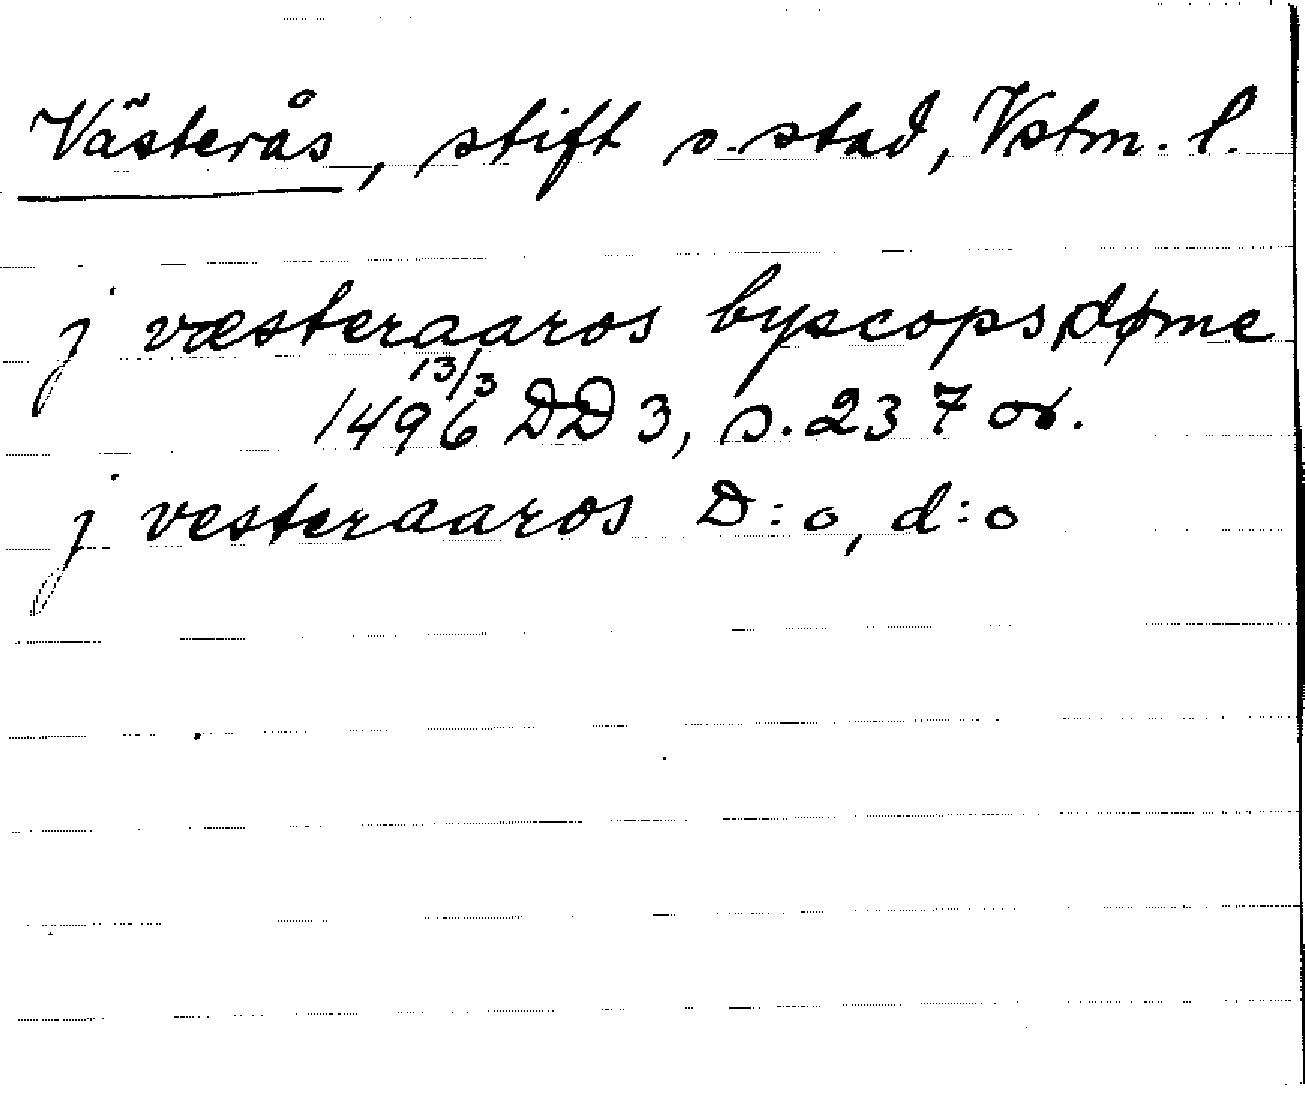 Västerås, stift o. stad, Vstm. l.
j væsteraaros byscopsdøme
13/3
1496 DD 3, s. 237 or.
j vesteraaros D:o, d:o